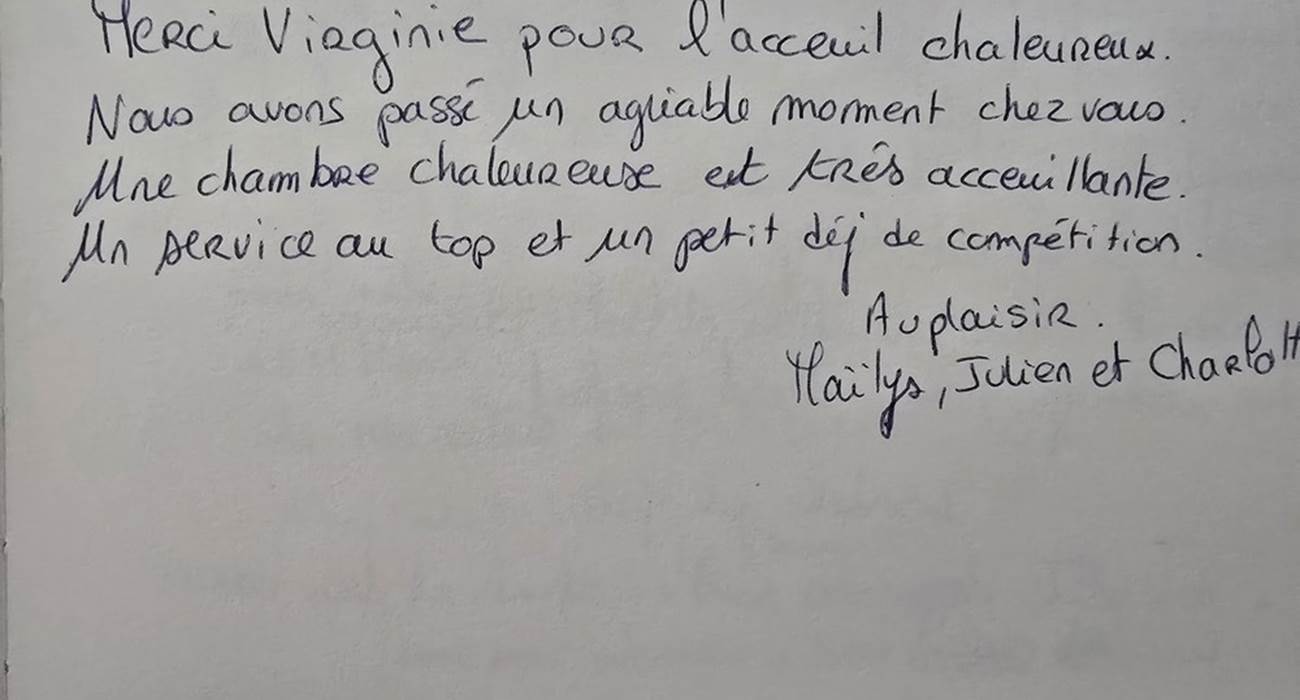 Merci Virginie pour l'acceuil chaleureux.
Nous avons passé un agréable moment chez vous.
Une chambre chaleureuse et très acceuillante.
Un service au top et un petit déj de compétition.
Au plaisir.
Maïlys, Julien et Charlott